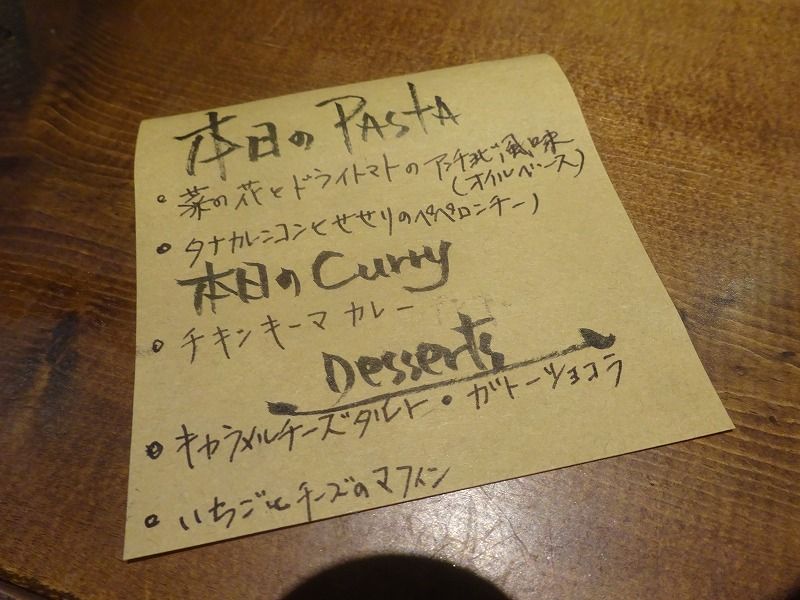 本日の PASTA
• 菜の花とドライトマトのアンチョビ風味
(オイルベース)
• タナカレンコンとせせりのペペロンチーノ
本日の Curry
• チキンキーマ カレー
Desserts
• キャラメルチーズタルト • ガトーショコラ
• いちごとチーズのマフィン